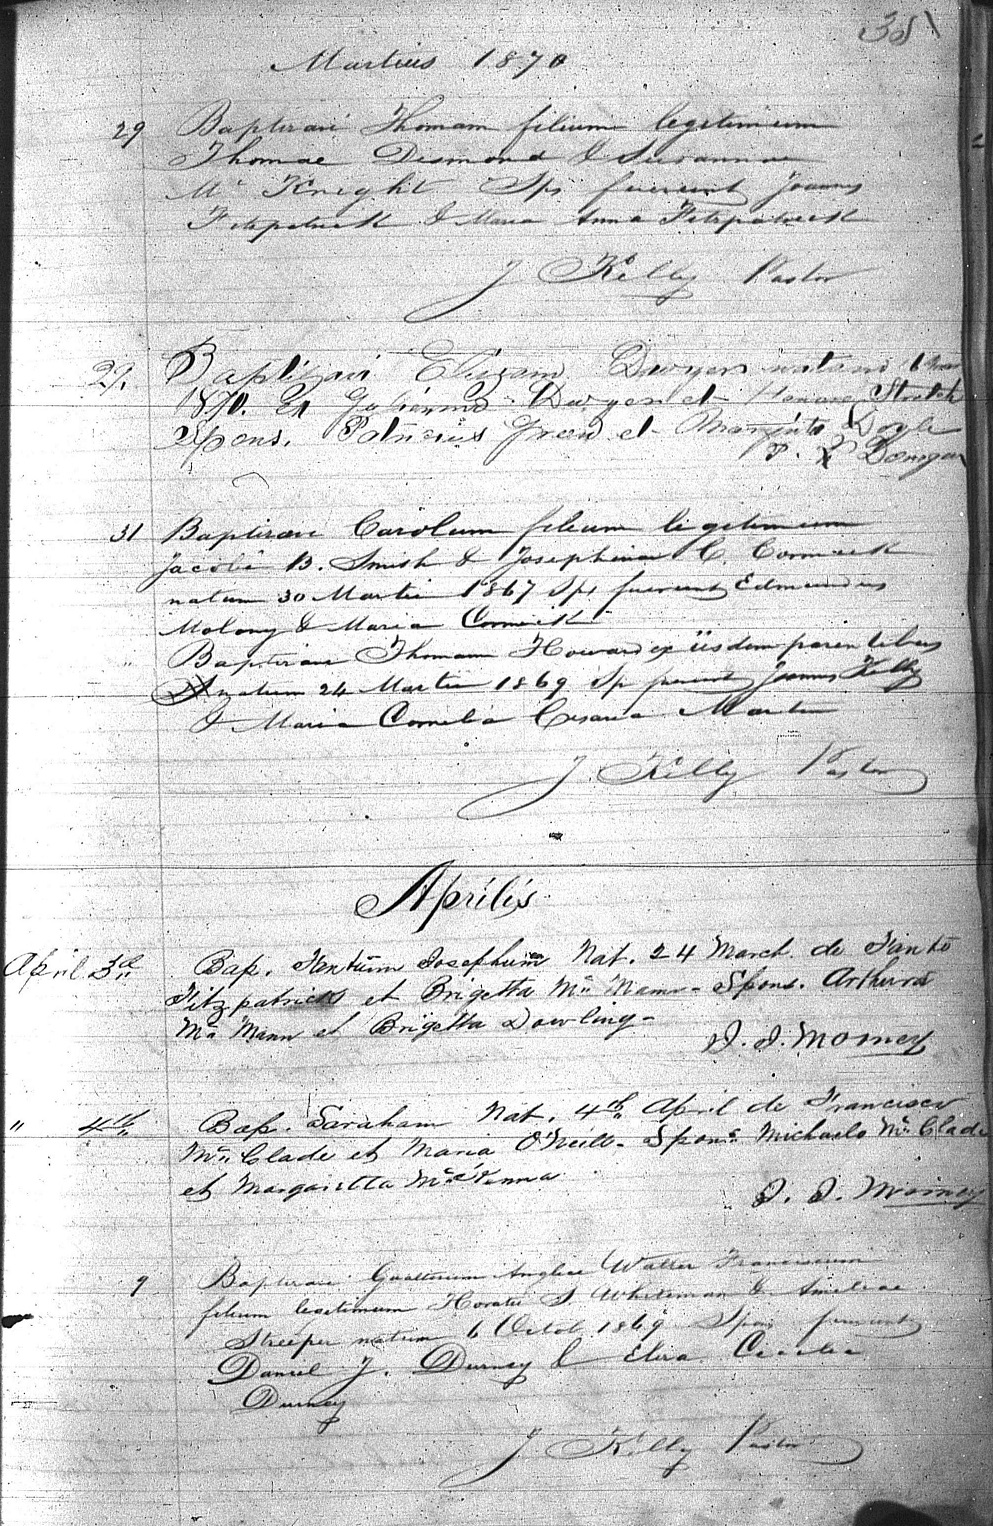 38
Martius 1870
29 Baptizavi Thomam filium legitimum
Thomae Desmond & Susannae
Mc Knight Sps fuerunt Joannes
Fitzpatrick & Maria Anna Fitzpatrick
J Kelly Pastor
29. Baptizavi Elizam Dwyer natam 1 Mar
1870. Ex Gulielmo Dwyer et Honora Stretch
Spons. Patricius Green et Margarita Doyle
P. Donegan
31 Baptizavi Carolum filium legitimum
Jacobi B. Smith & Josephinae C. Cormick
natum 30 Martii 1867 Sps fuerunt Edmundus
Molony & Maria Cormick
" Baptizavi Thomam Howard ex iisdem parentibus
natum 24 Martii 1869 Sp fuerunt Joannes Kelly
& Maria Cornelia Cesaria Martin
J. Kelly Pastor
Aprilis
April 3d Bap. Josephum Nat. 24 March de
Fitzpatrick et Brigetta Mc Mann - Spons. Arthuro
Mc Mann et Brigetta Dowling -
J. J. Mooney
" 4th Bap. Saraham Nat. 4th April de Francisco
Mc Glade et Maria O'Neill - Spons Michaelo Mc Glade
et Margaretta McKenna
J. J. Mooney
9 Baptizavi Gualterum Anglice Walter Franciscum
filium legitimum Horatii S. Whiteman & Ameliae
Streeper natum 6 Octob 1869 Spons fuerunt
Daniel J. Durney & Eliza Cecilia
Durney
J Kelly Pastor